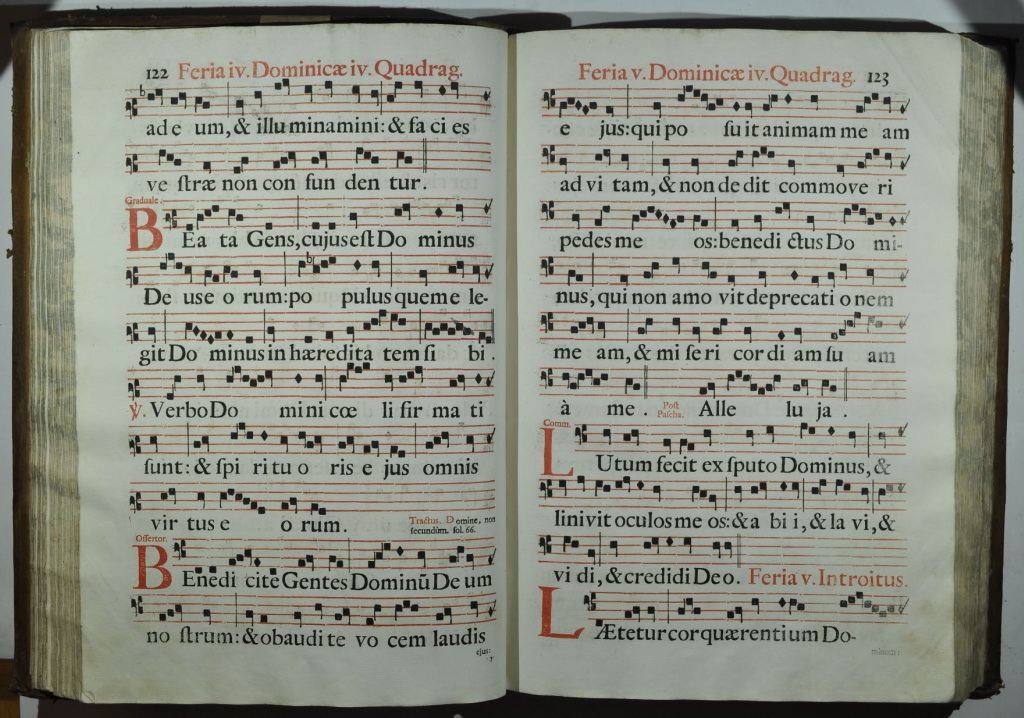 122 Feria iv. Dominicæ iv. Quadrag.
ad e um, & illu minamini: & fa ci es
ve ſtræ non con fun den tur.
Graduale.
BEa ta Gens, cujus eſt Do minus
De us e o rum: po pulus quem e le-
git Do minus in hæredita tem ſi bi.
℣. Verbo Do mini cœ li fir ma ti
ſunt: & ſpi ri tu o ris e jus omnis
vir tus e o rum. Tractus. Domine, non
ſecundùm. fol. 66.
Offertor.
BEnedi cite Gentes Dominū De um
no ſtrum: & obaudi te vo cem laudis
ejus:
Feria v. Dominicæ iv. Quadrag. 123
e jus: qui po ſu it animam me am
ad vi tam, & non de dit commove ri
pedes me os: benedi ctus Do mi-
nus, qui non amo vit deprecati o nem
me am, & mi ſe ri cor di am ſu am
à me. Poſt Paſcha. Alle lu ja.
Comm.
LUtum fecit ex ſputo Dominus, &
linivit oculos me os: & a bi i, & la vi, &
vi di, & credidi De o. Feria v. Introitus.
LÆtetur cor quærenti um Do-
minum: